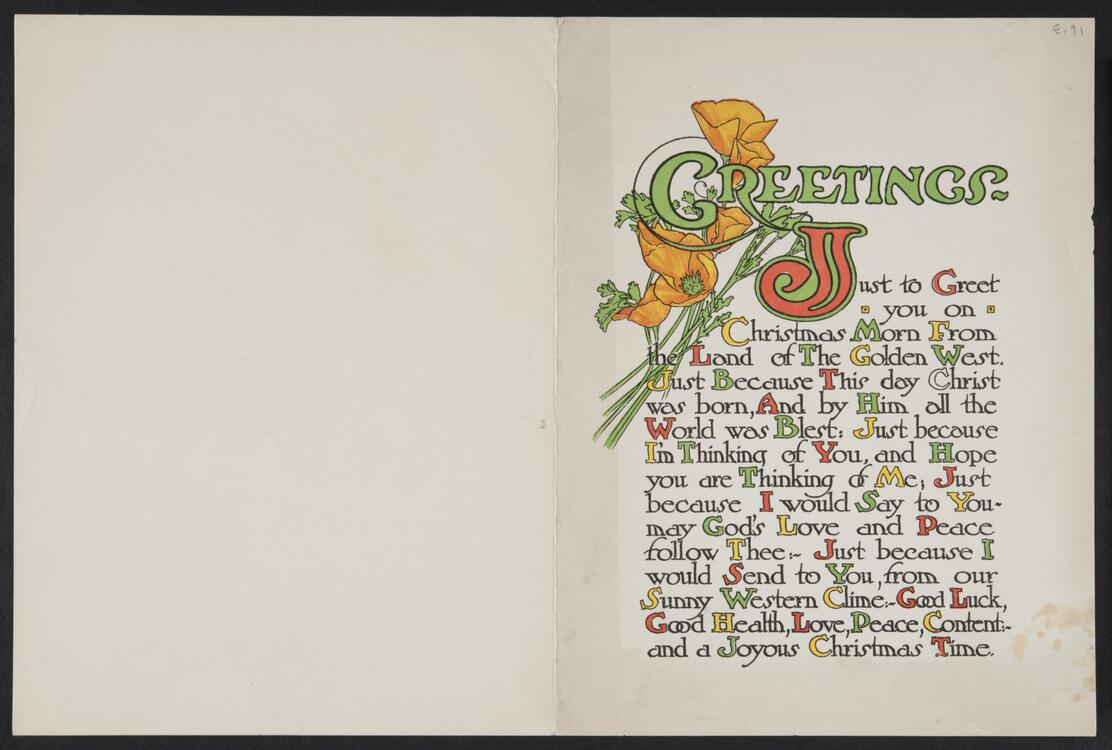 E.91
GREETINGS~
Just to Greet
you on
Christmas Morn From
the Land of The Golden West.
Just Because This day Christ
was born, And by Him all the
World was Blest: Just because
I'm Thinking of You, and Hope
you are Thinking of Me; Just
because I would Say to You-
may God's Love and Peace
follow Thee:~ Just because I
would Send to You, from our
Sunny Western Clime:~ Good Luck,
Good Health, Love, Peace, Content:~
and a Joyous Christmas Time.